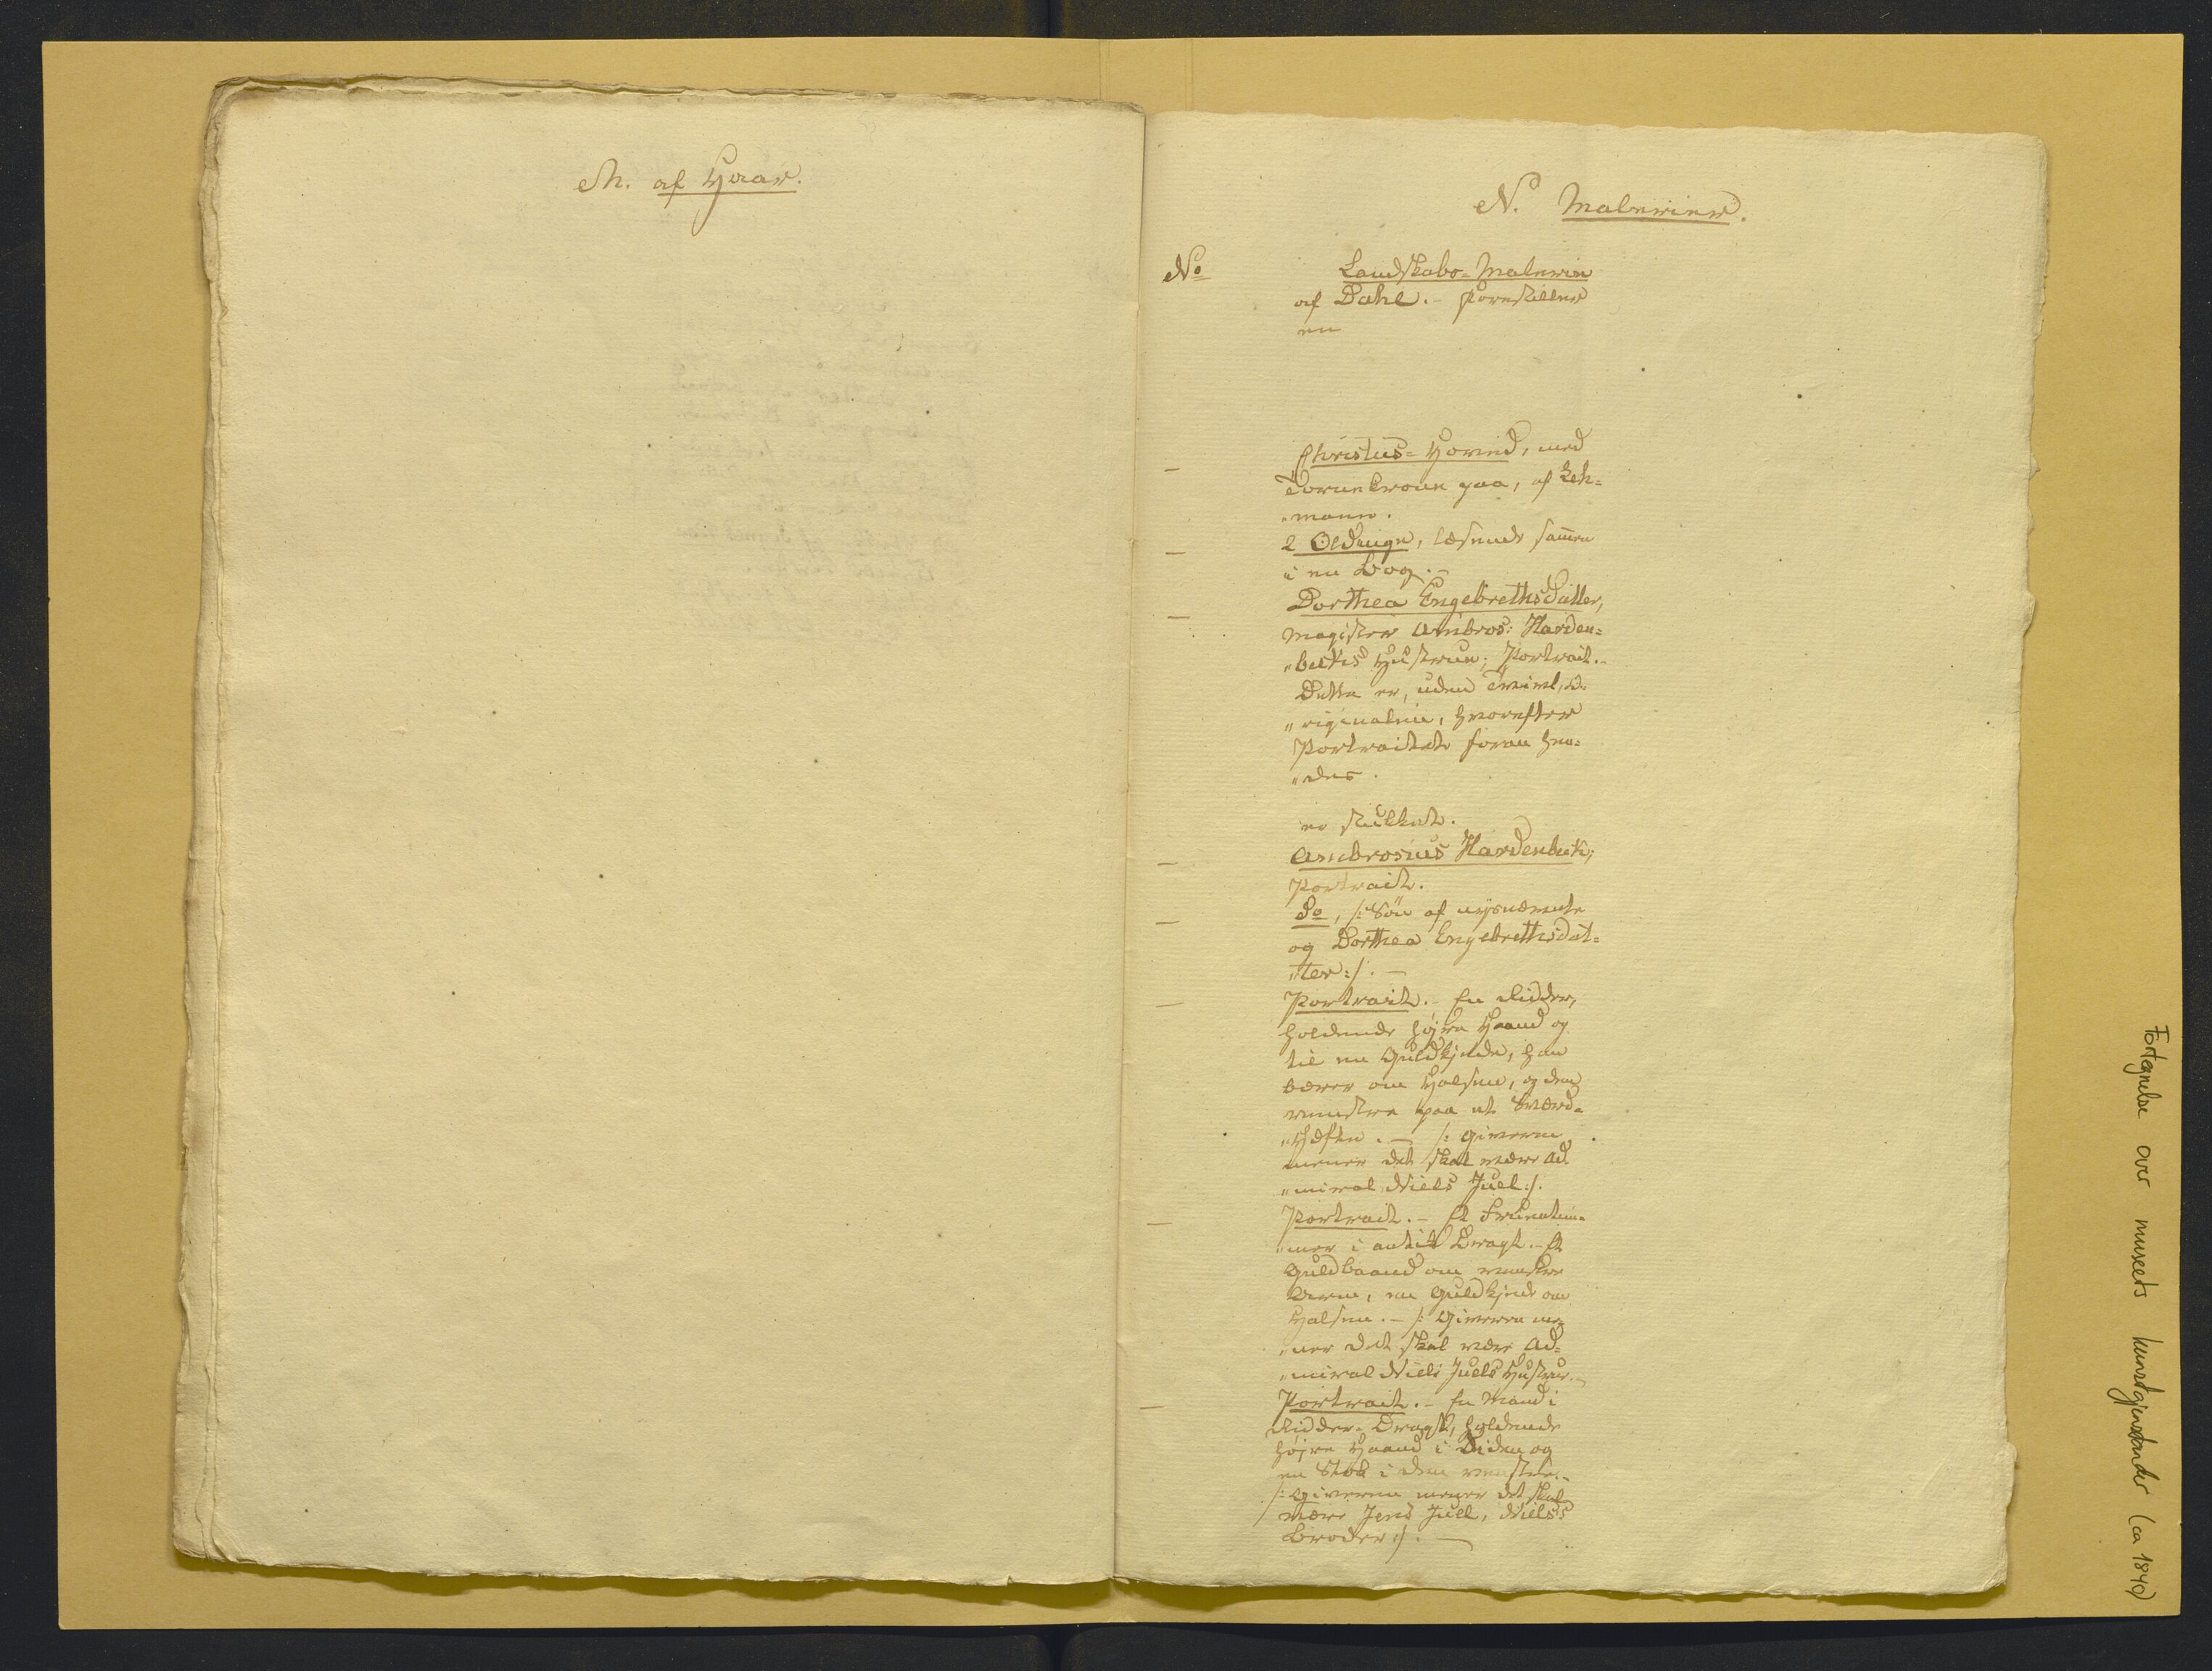 M. af Haar.
N. Malerier.
No
Landskabs-Malerie
af Dahl. - forestiller
en
- Christus-Hoved, med
Tornekrone paa, af Leh=
"mann.
- 2 Oldinge, læsende sam̄en
i en Bog. -
- Dorthea EngebrethsDatter,
Magister Ambros: Harden=
"becks Hustrue; Portrait. -
Dette er, uden Tvivl, O-
"riginalen, hvorefter
Portraitet foran hen=
"des
er stukket.
- Ambrosius Hardenbeck;
Portrait.
- Do, /: Søn af nysnævnte
og Dorthea Engebrethsdat=
"ter :/. -
- Portrait. - En Ridder,
holdende højre Haand op
til en Guldkjede, han
bærer om Halsen, og den
venstre paa et Sværd=
"Hefte. - /: Giveren
mener det skal være Ad
"miral Niels Juel :/.
- Portrait. - Et Fruentim=
"mer i antik Dragt. - Et
Guldbaand om venstre
Arm, en Guldkjede om
Halsen. - /: Giveren me=
"ner det skal være Ad=
"miral Niels Juels Hustrue. -
- Portrait. - En Mand i
Ridder-Dragt, holdende
højre Haand i Siden og
en Stok i den venstre. -
/: Giveren mener det skal
være Jens Juel, Niels's
Broder :/. -
Fortegnelse over museets kunstgjenstander (ca 1840)